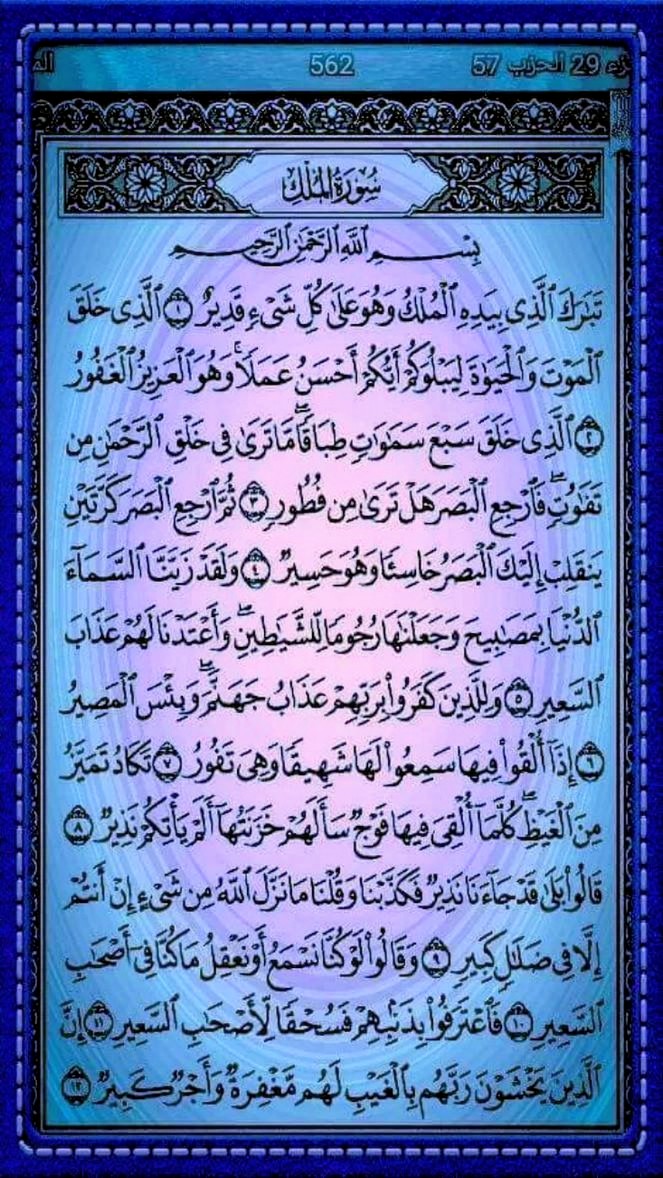 زء 29 الحزب 57 562 الم
سُورَةُ المُلْكِ
بِسْمِ ٱللَّهِ ٱلرَّحْمَٰنِ ٱلرَّحِيمِ
تَبَٰرَكَ ٱلَّذِى بِيَدِهِ ٱلْمُلْكُ وَهُوَ عَلَىٰ كُلِّ شَىْءٍ قَدِيرٌ ١ ٱلَّذِى خَلَقَ
ٱلْمَوْتَ وَٱلْحَيَوٰةَ لِيَبْلُوَكُمْ أَيُّكُمْ أَحْسَنُ عَمَلًا ۚ وَهُوَ ٱلْعَزِيزُ ٱلْغَفُورُ
٢ ٱلَّذِى خَلَقَ سَبْعَ سَمَٰوَٰتٍ طِبَاقًا ۖ مَّا تَرَىٰ فِى خَلْقِ ٱلرَّحْمَٰنِ مِن
تَفَٰوُتٍ ۖ فَٱرْجِعِ ٱلْبَصَرَ هَلْ تَرَىٰ مِن فُطُورٍ ٣ ثُمَّ ٱرْجِعِ ٱلْبَصَرَ كَرَّتَيْنِ
يَنقَلِبْ إِلَيْكَ ٱلْبَصَرُ خَاسِئًا وَهُوَ حَسِيرٌ ٤ وَلَقَدْ زَيَّنَّا ٱلسَّمَآءَ
ٱلدُّنْيَا بِمَصَٰبِيحَ وَجَعَلْنَٰهَا رُجُومًا لِّلشَّيَٰطِينِ ۖ وَأَعْتَدْنَا لَهُمْ عَذَابَ
ٱلسَّعِيرِ ٥ وَلِلَّذِينَ كَفَرُوا۟ بِرَبِّهِمْ عَذَابُ جَهَنَّمَ ۖ وَبِئْسَ ٱلْمَصِيرُ
٦ إِذَآ أُلْقُوا۟ فِيهَا سَمِعُوا۟ لَهَا شَهِيقًا وَهِىَ تَفُورُ ٧ تَكَادُ تَمَيَّزُ
مِنَ ٱلْغَيْظِ ۖ كُلَّمَآ أُلْقِىَ فِيهَا فَوْجٌ سَأَلَهُمْ خَزَنَتُهَآ أَلَمْ يَأْتِكُمْ نَذِيرٌ ٨
قَالُوا۟ بَلَىٰ قَدْ جَآءَنَا نَذِيرٌ فَكَذَّبْنَا وَقُلْنَا مَا نَزَّلَ ٱللَّهُ مِن شَىْءٍ إِنْ أَنتُمْ
إِلَّا فِى ضَلَٰلٍ كَبِيرٍ ٩ وَقَالُوا۟ لَوْ كُنَّا نَسْمَعُ أَوْ نَعْقِلُ مَا كُنَّا فِىٓ أَصْحَٰبِ
ٱلسَّعِيرِ ١٠ فَٱعْتَرَفُوا۟ بِذَنۢبِهِمْ فَسُحْقًا لِّأَصْحَٰبِ ٱلسَّعِيرِ ١١ إِنَّ
ٱلَّذِينَ يَخْشَوْنَ رَبَّهُم بِٱلْغَيْبِ لَهُم مَّغْفِرَةٌ وَأَجْرٌ كَبِيرٌ ١٢